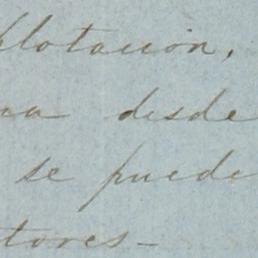 plotacion,
na desde
se puede
tores-